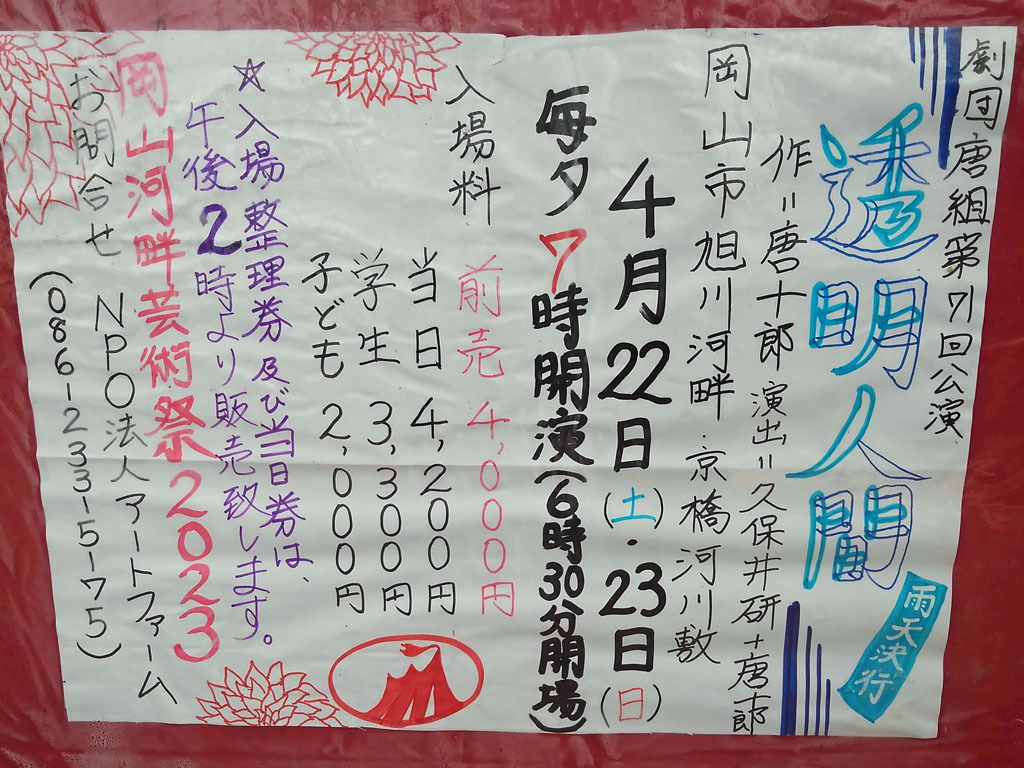 劇団唐組第71回公演
透明人間
雨天決行
作=唐十郎 演出=久保井研+唐十郎
岡山市旭川河畔・京橋河川敷
4月22日(土)・23日(日)
毎夕7時開演(6時30分開場)
入場料
前売 4,000円
当日 4,200円
学生 3,300円
子ども 2,000円
☆入場整理券及び当日券は、
午後2時より販売致します。
岡山河畔芸術祭2023
お問合せ NPO法人アートファーム
(086-233-5175)